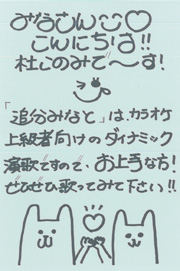 みなさん
こんにちは!!
杜このみで〜す!
「追分みなと」は、カラオケ
上級者向けのダイナミック
演歌ですので、お上手な方!
ぜひぜひ歌ってみて下さい!!